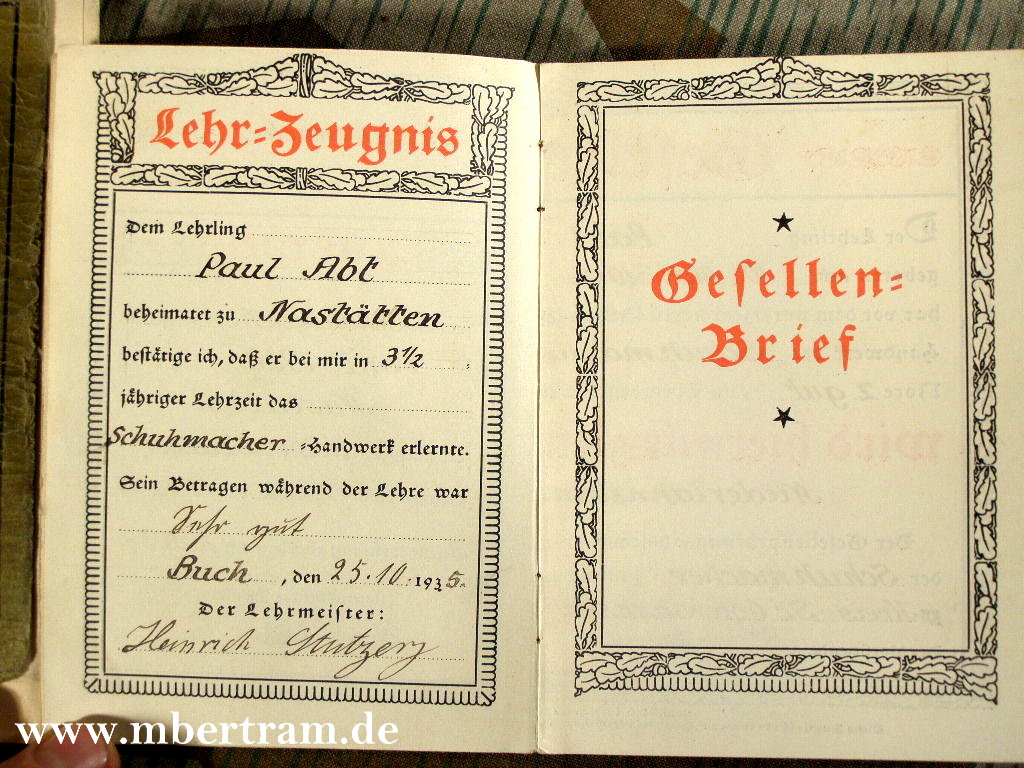 Lehr=Zeugnis
Dem Lehrling
Paul Abt
beheimatet zu Nastätten
bestätige ich, daß er bei mir in 3½
jähriger Lehrzeit das
Schuhmacher =Handwerk erlernte.
Sein Betragen während der Lehre war
Sehr gut
Buch, den 25.10.1935.
Der Lehrmeiſter:
Heinrich
Geſellen=
Brief
www.mbertram.de